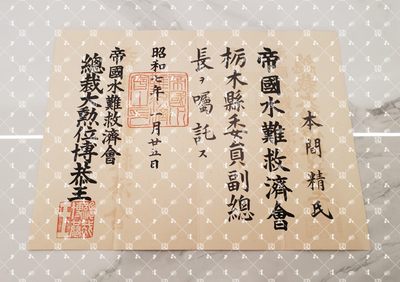 本間精氏
帝國水難救濟會
栃木縣委員副總
長ヲ嘱託ス
昭和七年一月廿五日
帝國水難救濟會
總裁大勲位博恭王